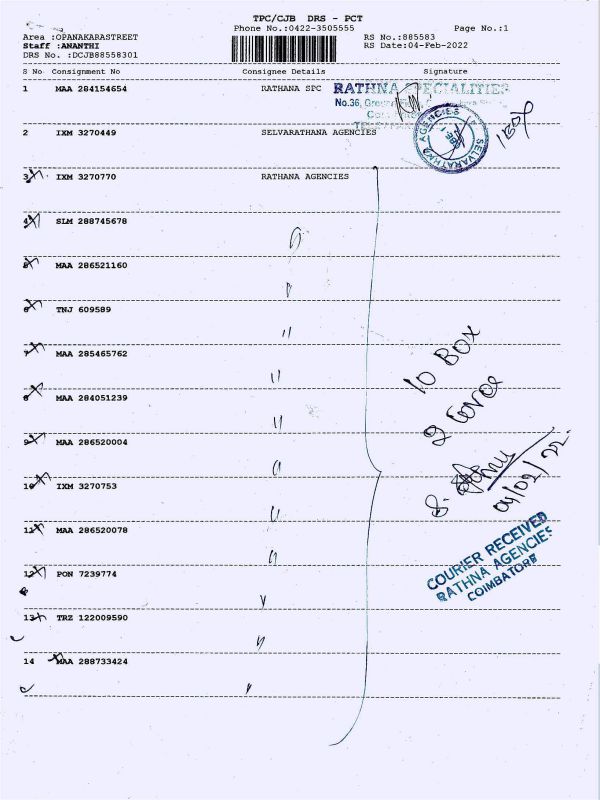 TPC/CJB DRS - PCT
Phone No.:0422-3505555 Page No.:1
Area :OPANAKARASTREET RS No.:885583
Staff :ANANTHI RS Date:04-Feb-2022
DRS No. :DCJB88558301
S No Consignment No Consignee Details Signature
1 MAA 284154654 RATHANA SPC RATHNA SPECIALITIES
No.36,
2 IXM 3270449 SELVARATHNA AGENCIES
SELVARATHNA AGENCIES
3 IXM 3270770 RATHANA AGENCIES
4 SLM 288745678
5 MAA 286521160
6 TNJ 609589
7 MAA 285465762
8 MAA 284051239
9 MAA 286520004
10 IXM 3270753
11 MAA 286520078
12 PON 7239774
13 TRZ 122009590
14 MAA 288733424
10 Box
2 Cover
04/02/22
COURIER RECEIVED
RATHNA AGENCIES
COIMBATORE